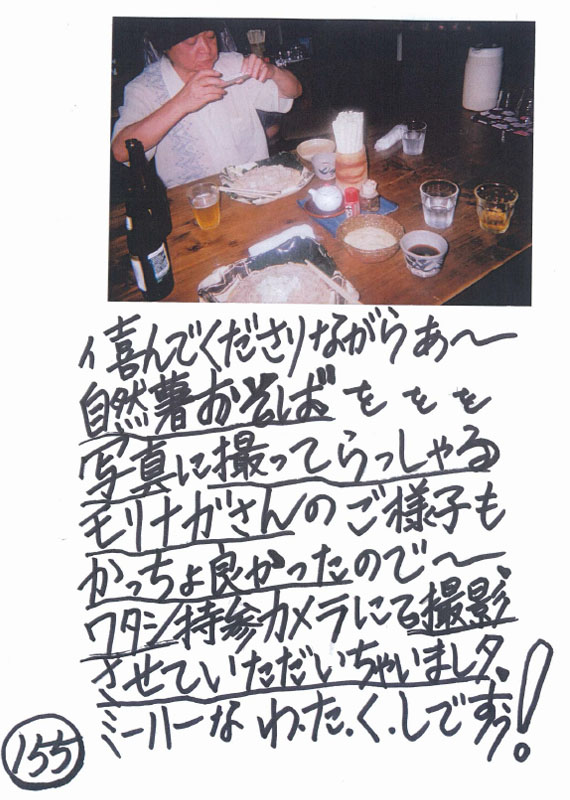 喜んでくださりながらあ〜
自然薯おそばををを
写真に撮ってらっしゃる
モリナガさんのご様子も
かっちょ良かったので〜、
ワタシ持参カメラにて撮影
させていただいちゃいました。
ミーハーなわ.た.く.しですぅ!
155